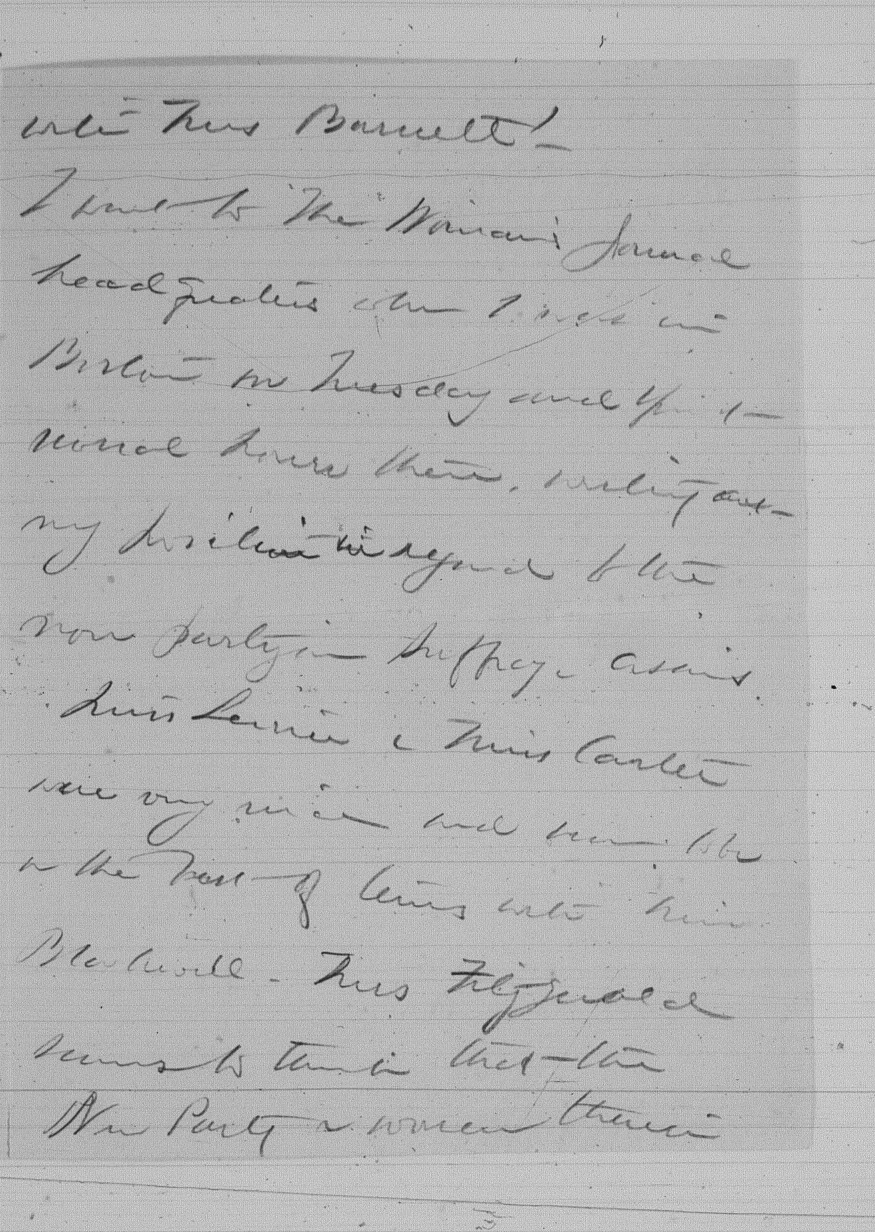 with Mrs Barnett!
I went to "The Woman's Journal
headquarters when I was in
Boston on Tuesday and spent
several hours there, writing out
my position in regard to the
non partizan suffrage assns.
Miss & Miss Carter
were very nice and seem to be
on the best of terms with Miss
Blackwell - Mrs Fitzgerald
seems to think that the
New Party a woman therein